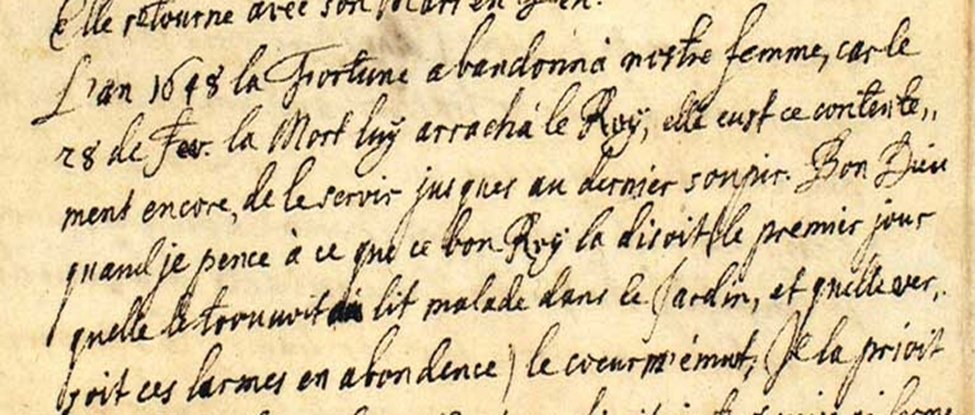 Elle retourne avec son Mari en
L'an 1648 la Fortune abandonna nostre femme, car le
28 de Fev. la Mort luy arracha le Roy, elle eust ce contente,,
ment encore, de le servir jusques au dernier soupir. Bon Dieu
quand je pence à ce que ce bon Roy la disoit (le premier jour
quelle le trouuoit au lit malade dans le Jardin, et quelle ver,,
soit ces larmes en abondence) le coeur m'émut, Je la prioit